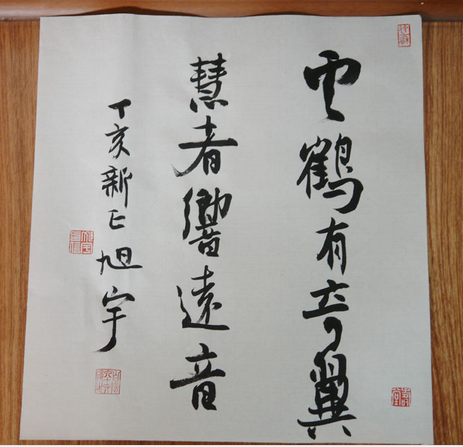 云鶴有奇翼
慧者響遠音
丁亥新正旭宇